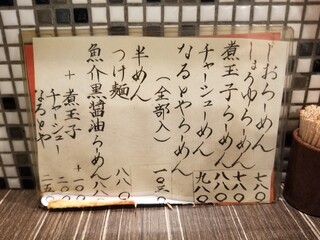 しおらーめん 七八〇
しょうゆらーめん 七八〇
煮玉子らーめん 八八〇
チャーシューめん 九八〇
なるとやらーめん
（全部入） 一〇三〇
半めん
つけ麺 八八〇
魚介黒醤油らーめん 八八〇
＋煮玉子 一〇〇
チャーシュー 二〇〇
なるとや 二五〇